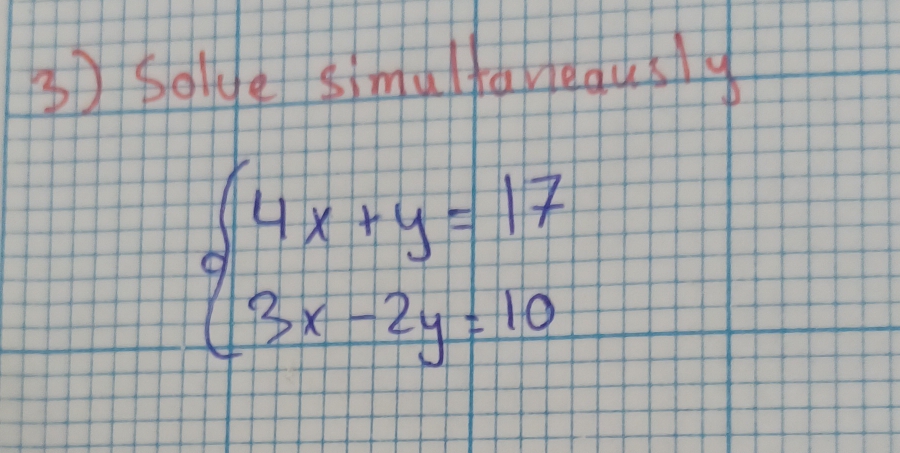 3) Solve simultaneously
4x + y = 17
3x - 2y = 10